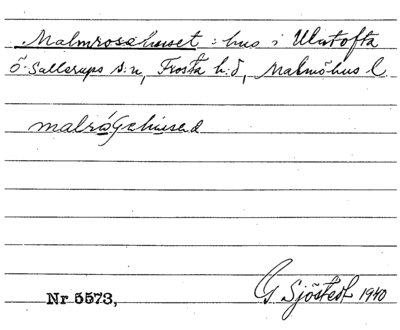 Malmrosahuset : hus i Ulatofta
Ö. Sallerups s:n, Frosta h:d, Malmöhus l.
Nr 5573,
G Sjöstedt 1940